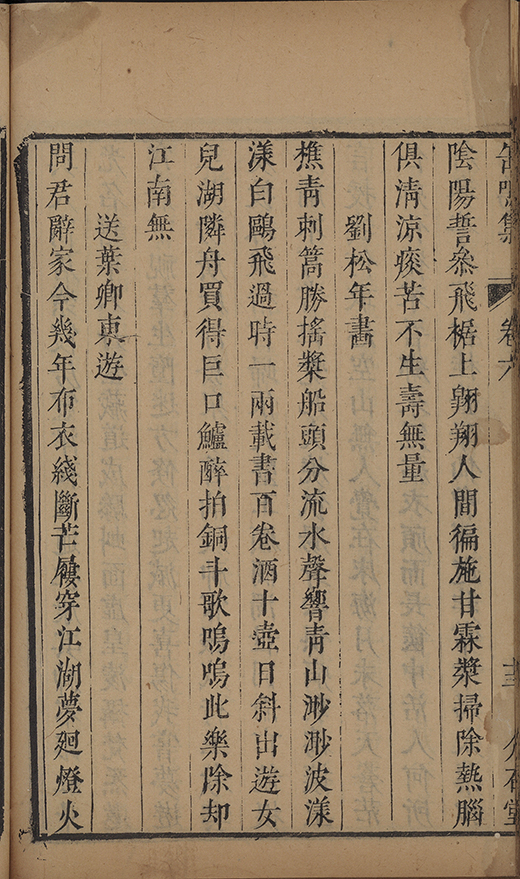 卷六
陰陽誓叅飛梔上翺翔人間徧施甘霖槳掃除熱腦
俱清涼痰苦不生壽無量
劉松年畵
樵青刺篙勝搖槳船頭分流水聲響青山渺渺波漾
漾白鷗飛過時一兩載書百卷酒十壺日斜出遊女
兒湖隣舟買得巨口鱸醉拍銅斗歌嗚嗚此樂除却
江南無
送葉卿東遊
問君辭家今幾年布衣綫斷芒屨穿江湖夢廻燈火